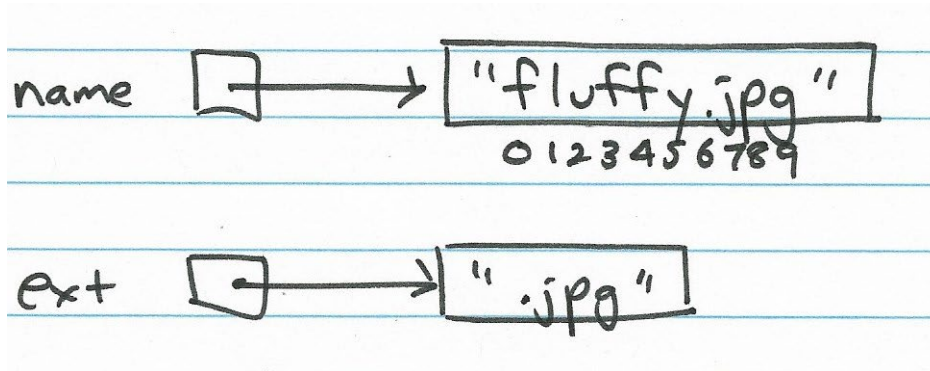 name "fluffy.jpg"
0 1 2 3 4 5 6 7 8 9
ext ".jpg"